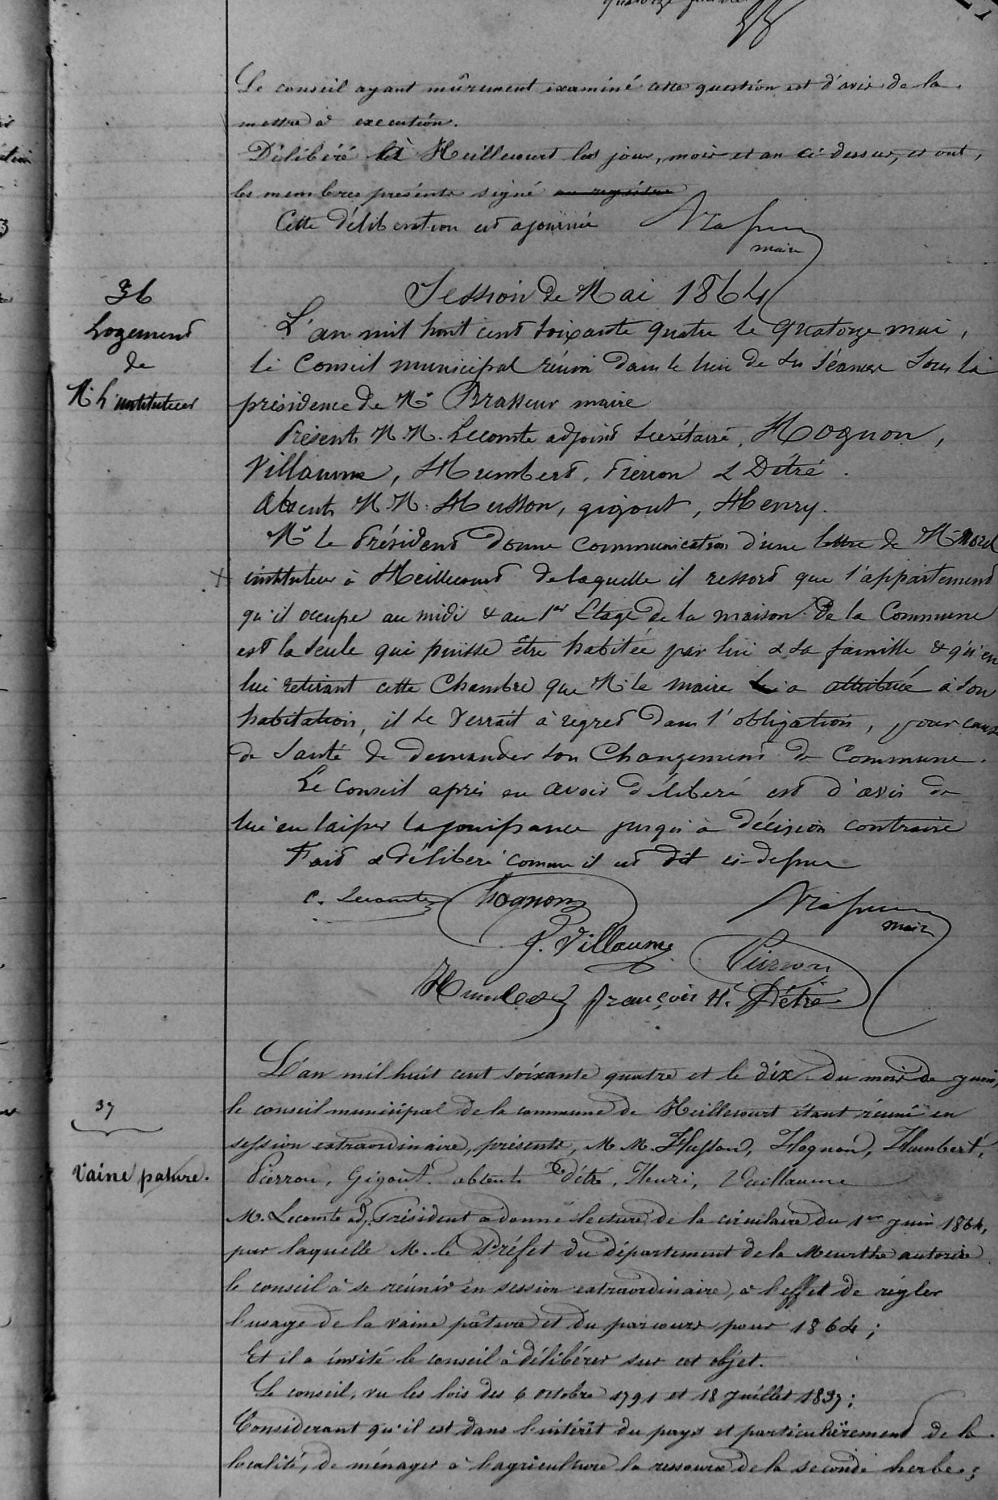 Le conseil ayant mûrement examiné cette question est d'avis de la
mettre à exécution.
Délibéré à Heillecourt les jour, mois et an ci dessus, et ont,
les membres présents signé au registre
Cette délibération est ajournée
Brasseur
maire
36
Logement
de
Mr L'instituteur
Session de Mai 1864
L'an mil huit cent soixante quatre le quatorze mai,
le Conseil municipal réuni dans le lieu de ses séances sous la
présidence de Mr Brasseur maire
Présents M.M. Lecomte adjoint secrétaire, Hognon,
Villaume, Humbert, Pierron & Détré.
Absents M.M. Husson, gigout, Henry.
Mr le Président donne communication d'une lettre de Mr Morel
instituteur à Heillecourt de laquelle il ressort que l'appartement
qu'il occupe au midi & au 1er Etage de la maison de la Commune
est la seule qui puisse être habitée par lui & sa famille & qu'en
lui retirant cette Chambre que Mr le maire a attribuée à son
habitation, il se verrait à regret dans l'obligation, pour cause
de santé de demander son Changement de Commune.
Le Conseil après en avoir délibéré est d'avis de
lui en laisser la jouissance jusqu'à décision contraire
Fait & délibéré comme il est dit ci-dessus
C. Lecomte Hognon Brasseur
maire
J. Villaume
Pierron
Humbert françois H. Détré
37
Vaine pature.
L'an mil huit cent soixante quatre et le dix du mois de juin,
le conseil municipal de la commune de Heillecourt étant réuni en
session extraordinaire, présents, M M. Husson, Hognon, Humbert,
Pierron, Gigout. absents Détré, Henri, Vuillaume
M. Lecomte adj. Président a donné lecture de la circulaire du 1er juin 1864,
par laquelle M. le Préfet du département de la Meurthe autorise
le conseil à se réunir en session extraordinaire, à l'effet de régler
l'usage de la vaine pâture et du parcours pour 1864;
Et il a invité le conseil à délibérer sur cet objet.
Le conseil, vu les lois des 6 octobre 1791 et 18 juillet 1837;
Considérant qu'il est dans l'intérêt du pays et particulièrement de la
localité, de ménager à l'agriculture la ressource de la seconde herbe;